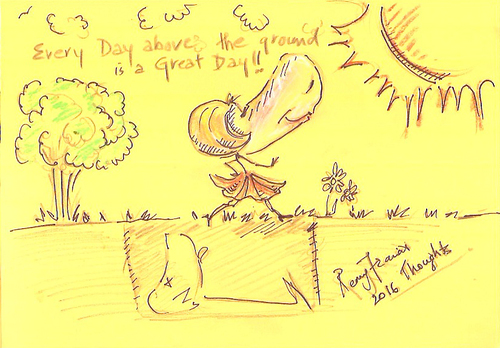 Every Day above the ground
is a Great Day!!
Remy Francis
2016 Thoughts